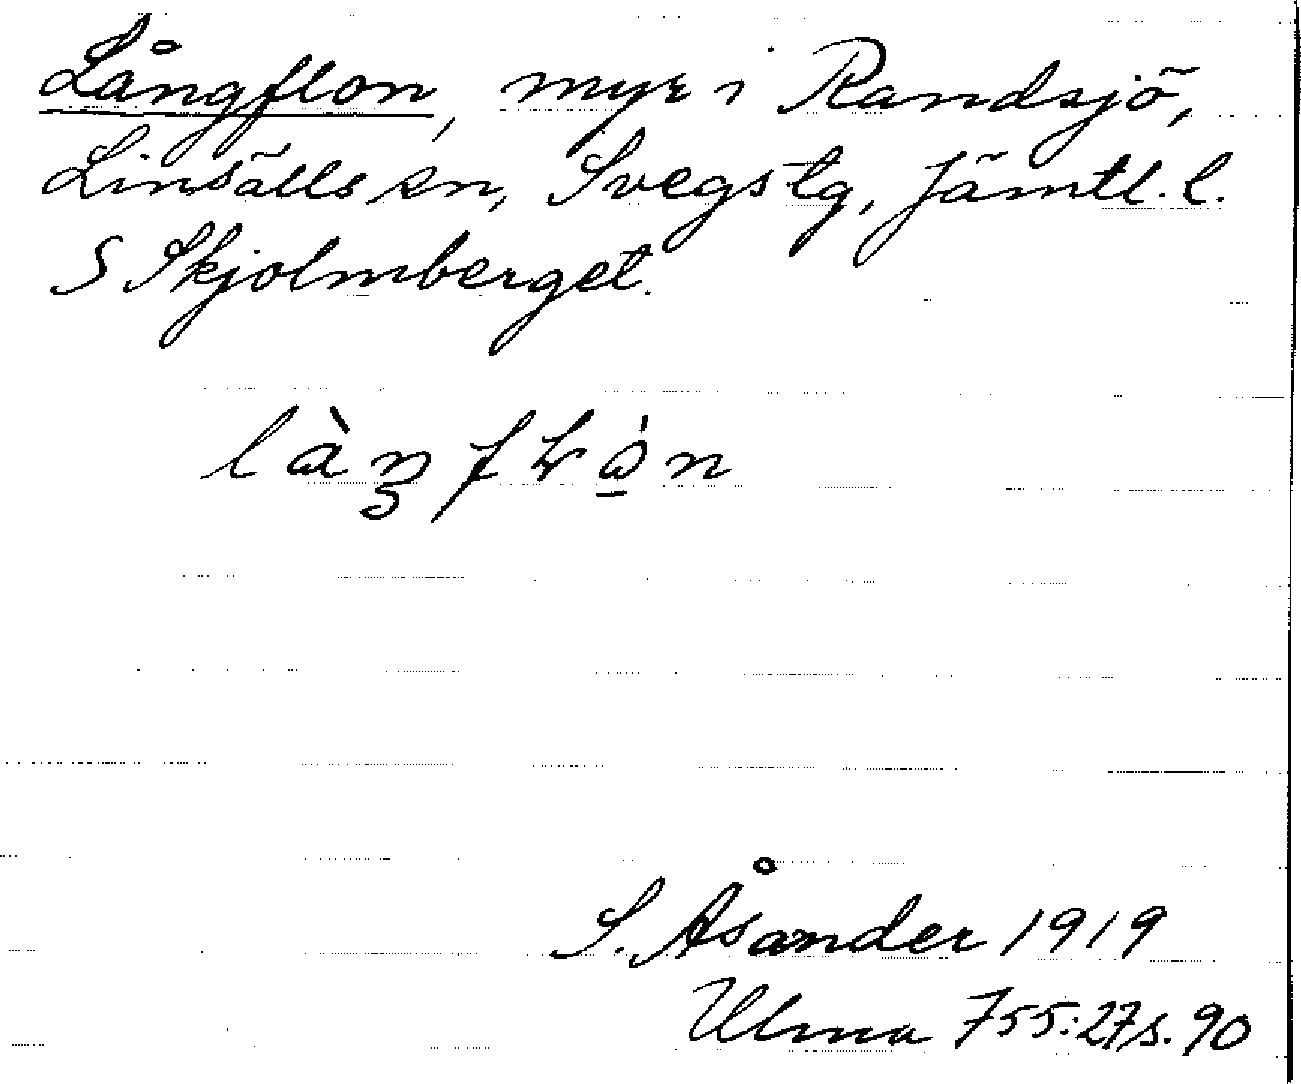 Långflon, myr i Randsjö,
Linsälls sn, Svegs tg, Jämtl. l.
S Skjolmberget.
làŋfɫȯ̱n
S. Åsander 1919
Ulma 755:27 s. 90